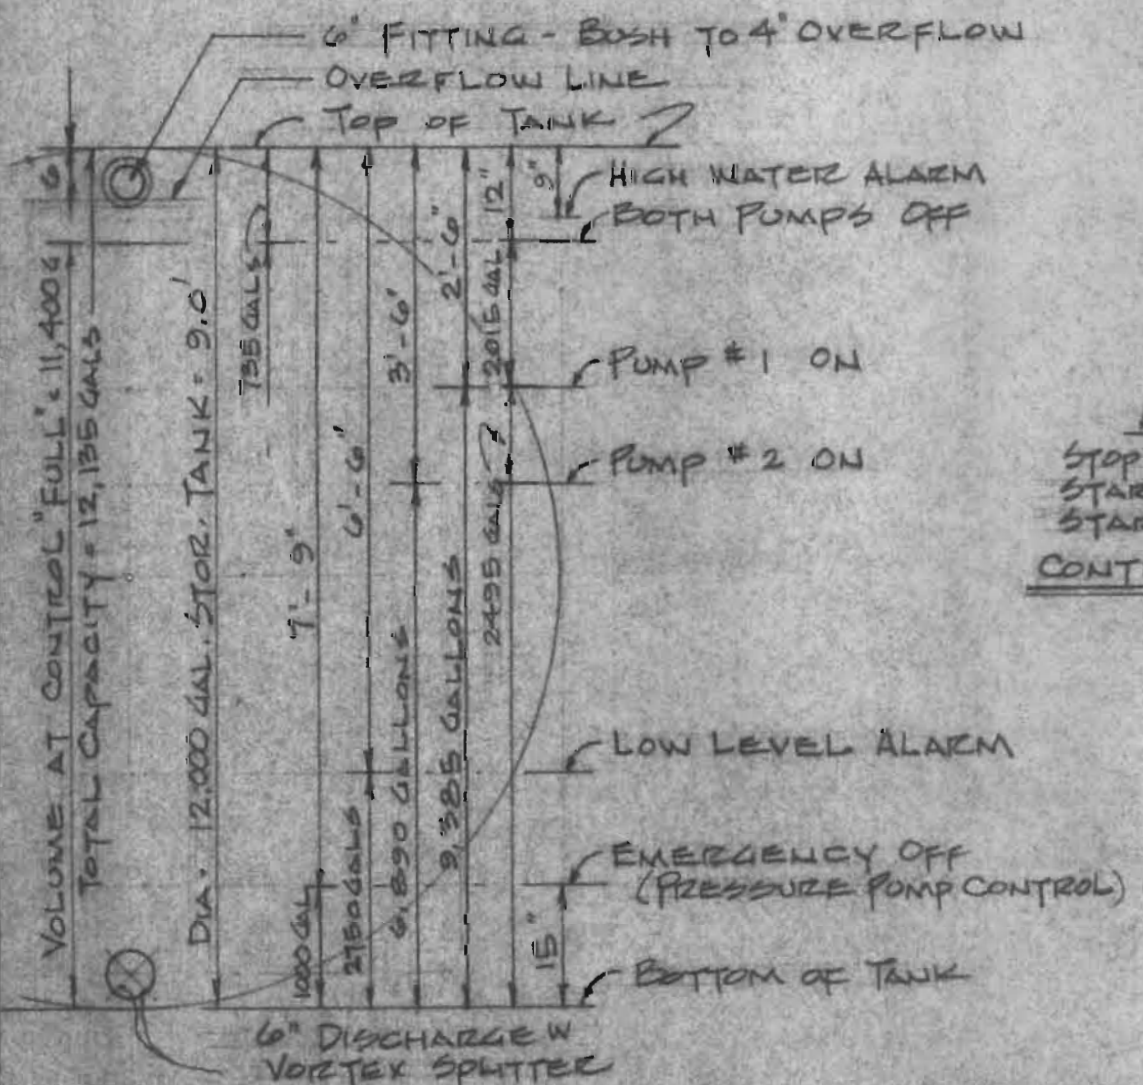 6" FITTING - BUSH TO 4" OVERFLOW
OVERFLOW LINE
TOP OF TANK
HIGH WATER ALARM
BOTH PUMPS OFF
PUMP #1 ON
PUMP #2 ON
LOW LEVEL ALARM
EMERGENCY OFF
(PRESSURE PUMP CONTROL)
BOTTOM OF TANK
6" DISCHARGE W
VORTEX SPLITTER
VOLUME AT CONTROL "FULL" = 11,400 G
TOTAL CAPACITY = 12,135 GALS
6"
DIA. 12,000 GAL. STOR. TANK = 9.0'
735 GALS
7'-9"
1000 GAL
6'-6"
2750 GALS
3'-6"
6,890 GALLONS
2'-6"
9,385 GALLONS
12"
2015 GAL
2495 GALS
9"
15"
STOP
STAR
STAR
CONT